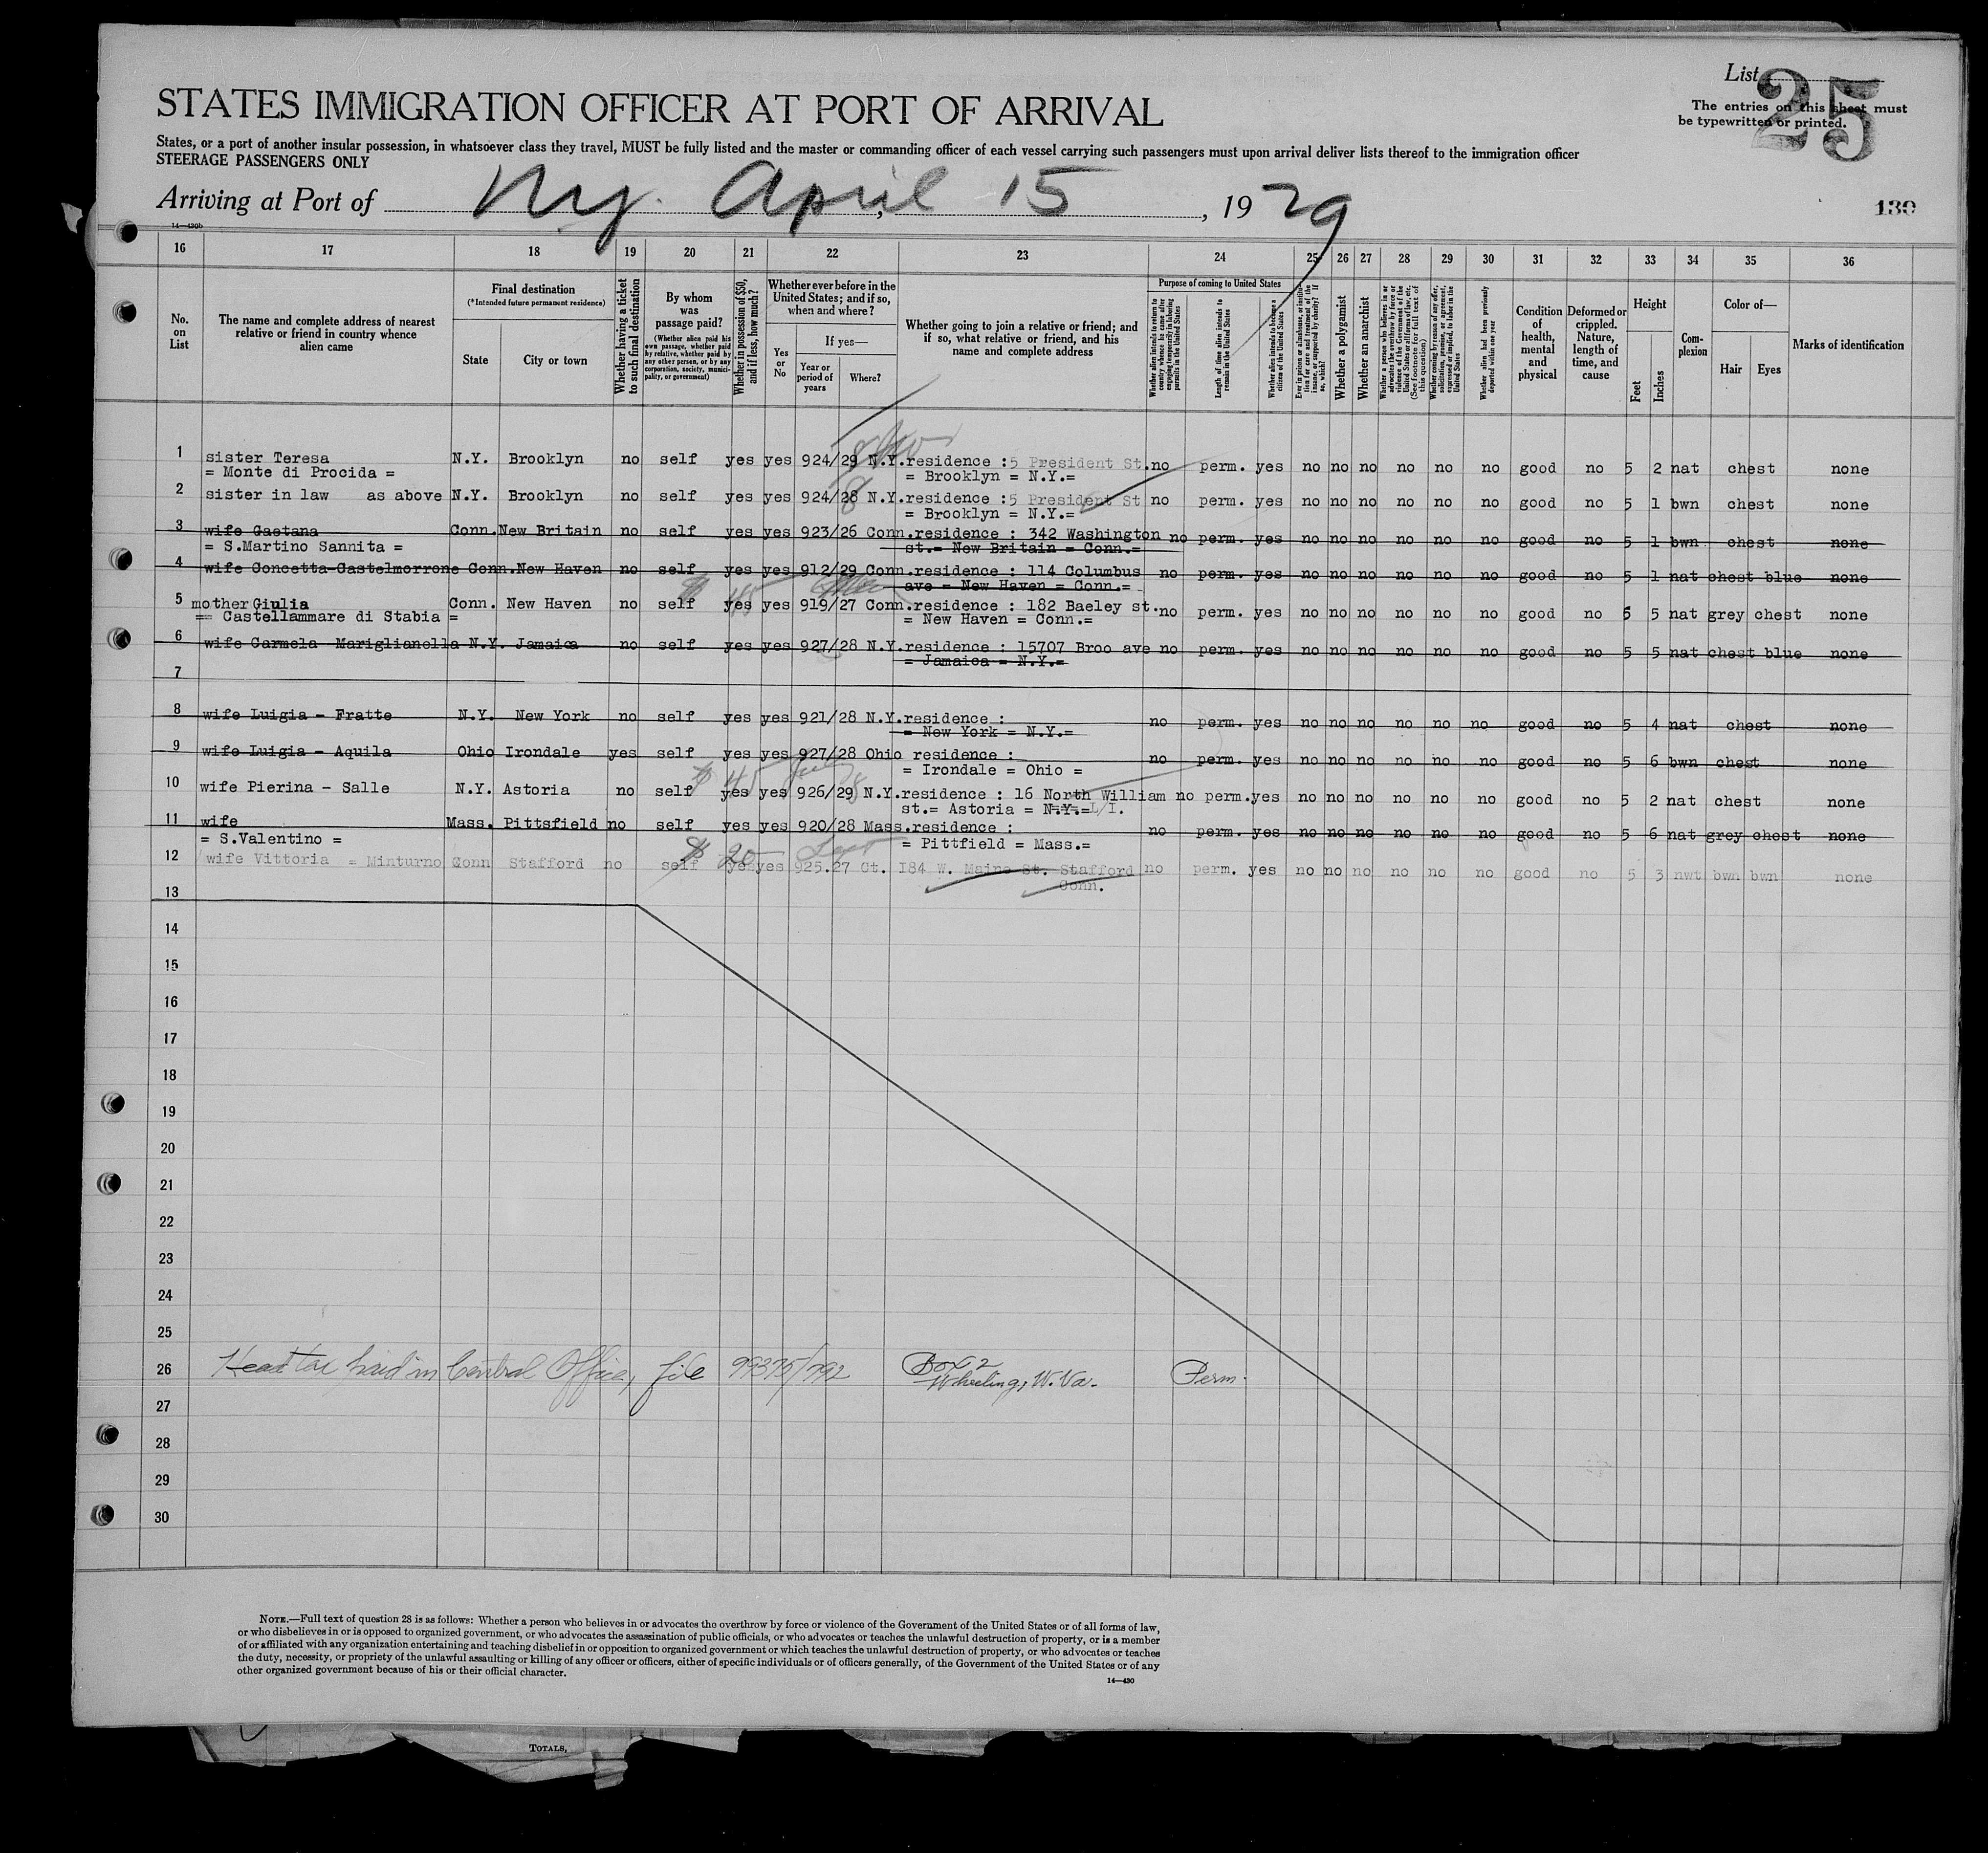 List 25
The entries on this sheet must
be typewritten or printed.
STATES IMMIGRATION OFFICER AT PORT OF ARRIVAL
States, or a port of another insular possession, in whatsoever class they travel, MUST be fully listed and the master or commanding officer of each vessel carrying such passengers must upon arrival deliver lists thereof to the immigration officer
STEERAGE PASSENGERS ONLY
Arriving at Port of Ny. April 15, 1929
130
14—430b
16 17 18 19 20 21 22 23 24 25 26 27 28 29 30 31 32 33 34 35 36
No. on List
The name and complete address of nearest relative or friend in country whence alien came
Final destination
(*Intended future permanent residence)
State
City or town
Whether having a ticket to such final destination
By whom was passage paid?
(Whether alien paid his own passage, whether paid by relative, whether paid by any other person, or by any corporation, society, municipality, or government)
Whether in possession of $50, and if less, how much?
Whether ever before in the United States; and if so, when and where?
Yes or No
If yes—
Year or period of years
Where?
Whether going to join a relative or friend; and if so, what relative or friend, and his name and complete address
Purpose of coming to United States
Whether alien intends to return to country whence he came after engaging temporarily in laboring pursuits in the United States
Length of time alien intends to remain in the United States
Whether alien intends to become a citizen of the United States
Ever in prison or almshouse, or institution for care and treatment of the insane, or supported by charity? If so, which?
Whether a polygamist
Whether an anarchist
Whether a person who believes in or advocates the overthrow by force or violence of the Government of the United States or all forms of law, etc. (See footnote for full text of this question)
Whether coming by reason of any offer, solicitation, promise, or agreement, expressed or implied, to labor in the United States
Whether alien had been previously deported within one year
Condition of health, mental and physical
Deformed or crippled. Nature, length of time, and cause
Height
Feet
Inches
Complexion
Color of—
Hair
Eyes
Marks of identification
1 sister Teresa N.Y. Brooklyn no self yes yes 924/29 N.Y. residence : 5 President St. no perm. yes no no no no no no good no 5 2 nat chest none
= Monte di Procida = = Brooklyn = N.Y.=
2 sister in law as above N.Y. Brooklyn no self yes yes 924/28 N.Y. residence : 5 President St no perm. yes no no no no no no good no 5 1 bwn chest none
= Brooklyn = N.Y.=
3 wife Gaetana Conn. New Britain no self yes yes 923/26 Conn. residence : 342 Washington no perm. yes no no no no no no good no 5 1 bwn chest none
= S.Martino Sannita = st.= New Britain = Conn.=
4 wife Concetta-Castelmorrone Conn. New Haven no self yes yes 912/29 Conn. residence : 114 Columbus no perm. yes no no no no no no good no 5 1 nat chest blue none
ave = New Haven = Conn.=
5 mother Giulia Conn. New Haven no self $ 45 yes yes 919/27 Conn. residence : 182 Baeley st. no perm. yes no no no no no no good no 5 5 nat grey chest none
== Castellammare di Stabia = = New Haven = Conn.=
6 wife Carmela Mariglianella N.Y. Jamaica no self yes yes 927/28 N.Y. residence : 15707 Broo ave no perm. yes no no no no no no good no 5 5 nat chest blue none
= Jamaica = N.Y.=
7
8 wife Luigia - Fratte N.Y. New York no self yes yes 921/28 N.Y. residence : no perm. yes no no no no no no good no 5 4 nat chest none
= New York = N.Y.=
9 wife Luigia - Aquila Ohio Irondale yes self yes yes 927/28 Ohio residence : no perm. yes no no no no no no good no 5 6 bwn chest none
= Irondale = Ohio =
10 wife Pierina - Salle N.Y. Astoria no self $ 45 yes yes 926/29 July 28 N.Y. residence : 16 North William no perm. yes no no no no no no good no 5 2 nat chest none
st.= Astoria = N.Y.= L/I.
11 wife Mass. Pittsfield no self yes yes 920/28 Mass. residence : no perm. yes no no no no no no good no 5 6 nat grey chest none
= S.Valentino = = Pittfield = Mass.=
12 wife Vittoria = Minturno Conn Stafford no self $ 20 yes yes 925.27 Sept Ct. 184 W. Maine St. Stafford no perm. yes no no no no no no good no 5 3 nwt bwn bwn none
Conn.
13
14
15
16
17
18
19
20
21
22
23
24
25
26 Head tax paid in Central Office, file 99375/792 Box 2 Perm.
Wheeling, W. Va.
27
28
29
30
NOTE.—Full text of question 28 is as follows: Whether a person who believes in or advocates the overthrow by force or violence of the Government of the United States or of all forms of law,
or who disbelieves in or is opposed to organized government, or who advocates the assassination of public officials, or who advocates or teaches the unlawful destruction of property, or is a member
of or affiliated with any organization entertaining and teaching disbelief in or opposition to organized government or which teaches the unlawful destruction of property, or who advocates or teaches
the duty, necessity, or propriety of the unlawful assaulting or killing of any officer or officers, either of specific individuals or of officers generally, of the Government of the United States or of any
other organized government because of his or their official character.
14—430
TOTALS,